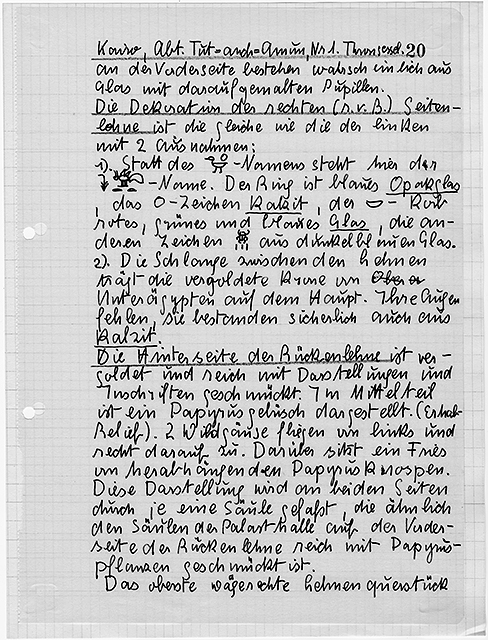 Kairo, Abt. Tut=anch=Amun, Nr 1. Thronsessel. 20
an der Vorderseite bestehen wahrscheinlich aus
Glas mit daraufgemalten Pupillen.
Die Dekoration der rechten (r.v.B.) Seiten-
lehne ist die gleiche wie die der linken
mit 2 Ausnahmen:
1). Statt des -Namens steht hier der
-Name. Der Ring ist blaues Opakglas
, das O-Zeichen Kalzit, der -Korb
rotes, grünes und blaues Glas, die an-
deren Zeichen aus dunkelblauem Glas.
2). Die Schlange zwischen den Lehnen
trägt die vergoldete Krone von Ober
Unterägypten auf dem Haupt. Ihre Augen
fehlen, sie bestanden sicherlich auch aus
Kalzit.
Die Hinterseite der Rückenlehne ist ver-
goldet und reich mit Darstellungen und
Inschriften geschmückt. Im Mittelteil
ist ein Papyrusgebüsch dargestellt. (Erhab.
Relief). 2 Wildgänse fliegen von links und
recht darauf zu. Darüber sitzt ein Fries
von herabhängenden Papyrusknospen.
Diese Darstellung wird an beiden Seiten
durch je eine Säule gefaßt, die ähnlich
den Säulen der Palasthalle auf der Vorder-
seite der Rückenlehne reich mit Papyrus-
pflanzen geschmückt ist.
Das oberste wagerechte Lehnenquerstück